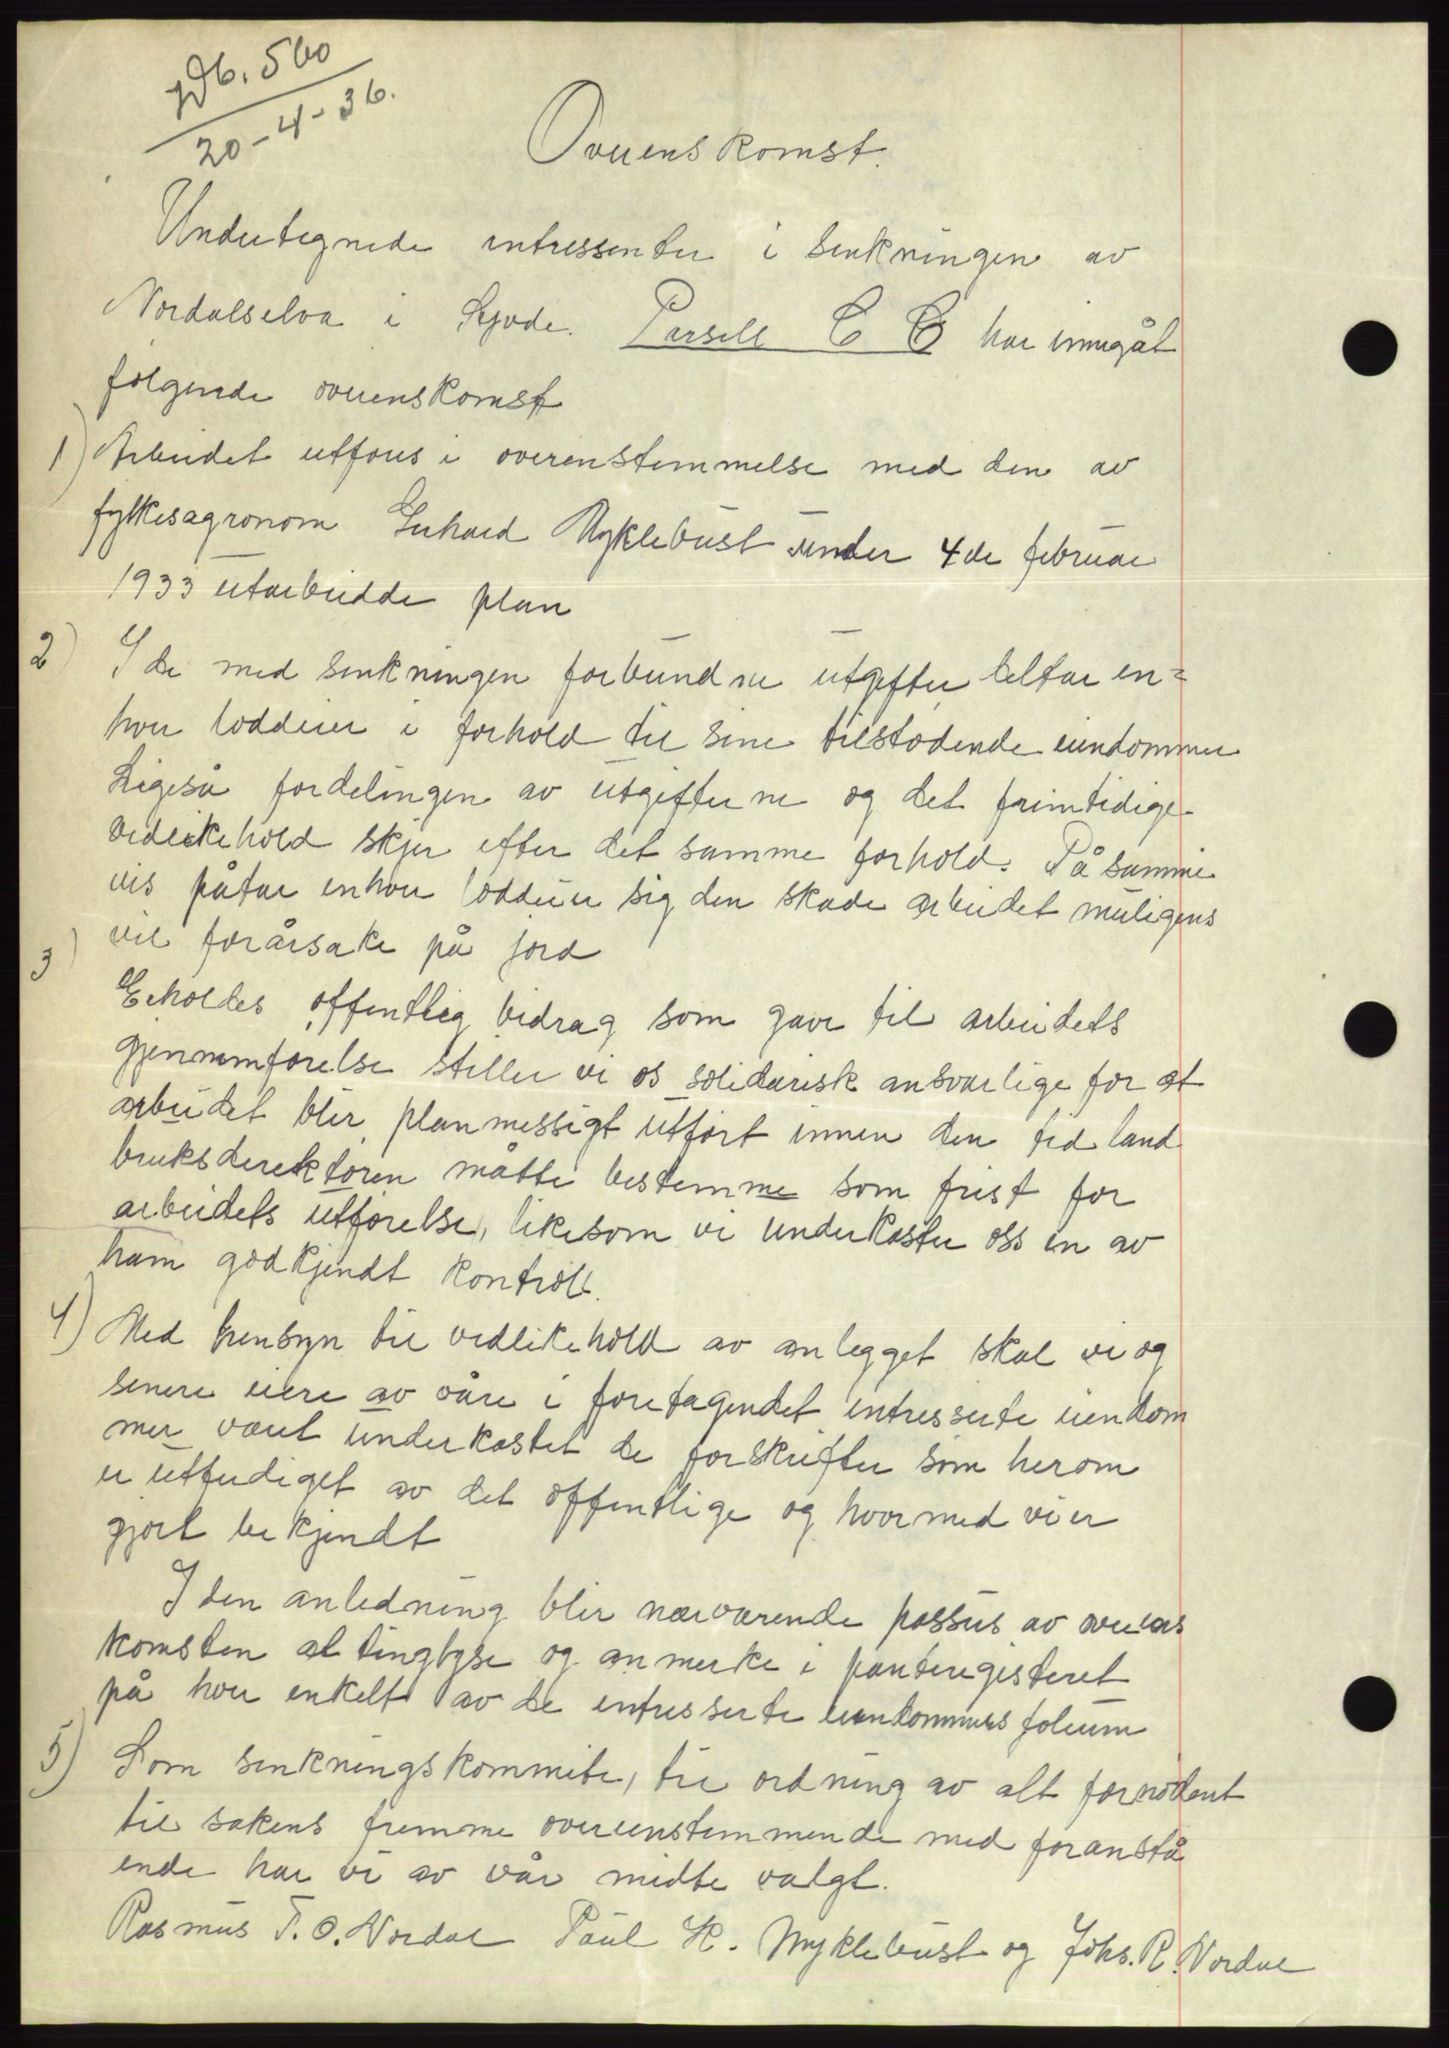 Db. 560
20-4-36.
Overenskomst.
Undertegnede intressenter i senkningen av
Nordalselva i Syvde. Parsell C C har inngåt
følgende overenskomst
1) Arbeidet utføres i overenstemmelse med den av
fylkesagronom Gerhard Myklebust under 4de februar
1933 utarbeidde plan
2) I de med senkningen forbundne utgifter deltar en=
hver loddeier i forhold til sine tilstødende eiendommer
Ligeså fordelingen av utgifterne og det fremtidige
vedlikehold skjer efter det samme forhold. På samme
vis påtar enhver loddeier sig den skade arbeidet muligens
vil forårsake på jord
3) Erholdes offentlig bidrag som gave til arbeidets
gjennemførelse stiller vi os solidarisk ansvarlige for at
arbeidet blir planmessigt utført innen den tid land
bruksdirektøren måtte bestemme som frist for
arbeidets utførelse, likesom vi underkaster oss en av
ham godkjendt kontroll.
4) Med hensyn til vedlikehold av anlegget skal vi og
senere eiere av våre i foretagendet intresserte eiendom
mer været underkastet de forskrifter som herom
er utferdiget av det offentlige og hvormed vi er
gjort bekjendt
I den anledning blir nærværende passus av overens
komsten at tinglyse og anmerke i panteregisteret
på hver enkelt av de intresserte eiendommers folium
5) Som senkningskommite, til ordning av alt fornødent
til sakens fremme overeenstemmende med foranstå
ende har vi av vår midte valgt.
Rasmus T. O. Nordal Paul K. Myklebust og Johs. R. Nordal